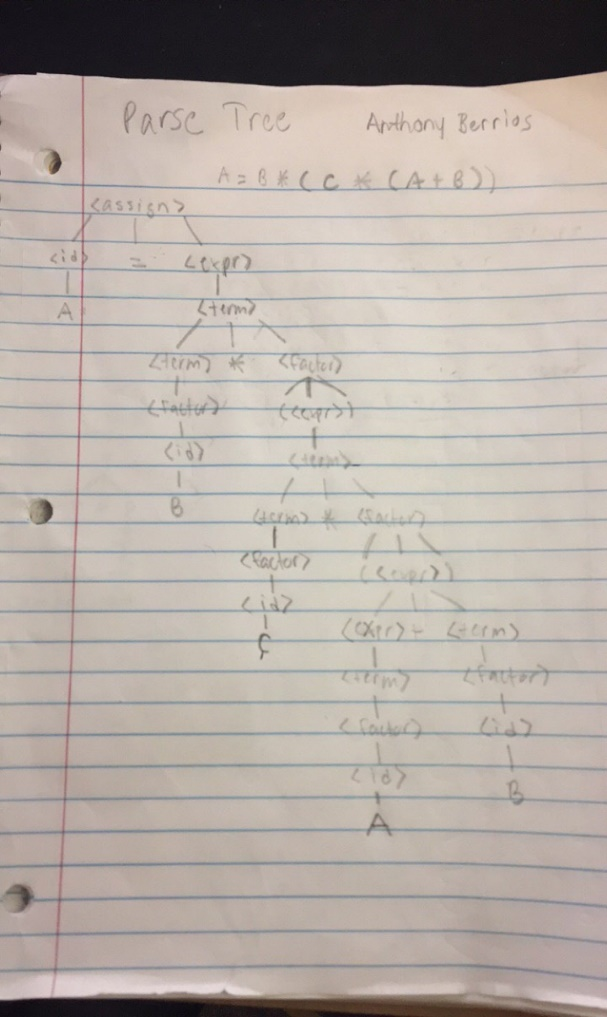 Parse Tree Anthony Berrios
A = B * ( C * ( A + B ) )
<assign>
<id> = <expr>
A <term>
<term> * <factor>
<factor> (<expr>)
<id> <term>
B
<term> * <factor>
<factor> (<expr>)
<id>
C <expr> + <term>
<term> <factor>
<factor> <id>
<id> B
A